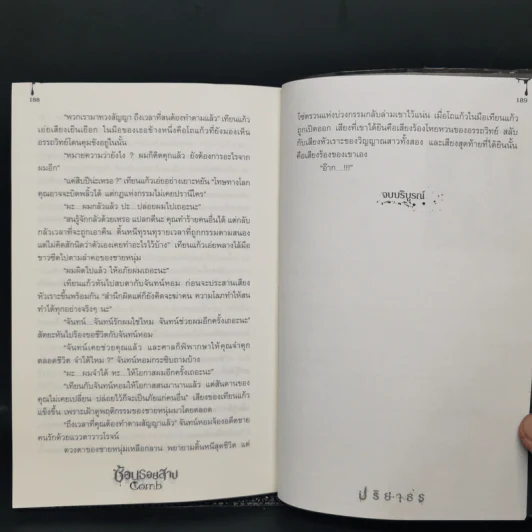 188
"พวกเรามาทวงสัญญา ถึงเวลาที่สนต้องทำตามแล้ว" เทียนแก้ว
เอ่ยเสียงเย็นเยือก ในมือของเธอข้างหนึ่งคือโถแก้วที่ยังมองเห็น
อรรถวิทย์โดนคุมขังอยู่ในนั้น
"หมายความว่ายังไง ? ผมก็ติดคุกแล้ว ยังต้องการอะไรจาก
ผมอีก"
"แค่สิบปีน่ะเหรอ ?" เทียนแก้วเอ่ยอย่างเยาะหยัน "โทษทางโลก
คุณอาจจะบิดพลิ้วได้ แต่กฎแห่งกรรมไม่เคยปรานีใคร"
"ผะ...ผมกลัวแล้ว ปะ...ปล่อยผมไปเถอะนะ"
"สนรู้จักกลัวด้วยเหรอ แปลกดีนะ คุณทำร้ายคนอื่นได้ แต่กลับ
กลัวเวลาที่จะถูกเอาคืน ดิ้นหนีทุรนทุรายเวลาที่ถูกกรรมตามสนอง
แต่ไม่คิดสักนิดว่าตัวเองเคยทำอะไรไว้บ้าง" เทียนแก้วเอ่ยพลางไล้มือ
ขาวซีดไปตามลำคอของชายหนุ่ม
"ผมผิดไปแล้ว ให้อภัยผมเถอะนะ"
เทียนแก้วหันไปสบตากับจันทน์หอม ก่อนจะประสานเสียง
หัวเราะขึ้นพร้อมกัน "สำนึกผิดแต่ก็ยังคิดจะฆ่าคน ความโลภทำให้สน
ทำได้ทุกอย่างจริงๆ นะ"
"จันทน์...จันทน์รักผมใช่ไหม จันทน์ช่วยผมอีกครั้งเถอะนะ"
สัตยะหันไปร้องขอชีวิตกับจันทน์หอม
"จันทน์เคยช่วยคุณแล้ว และศาลก็พิพากษาให้คุณจำคุก
ตลอดชีวิต จำได้ไหม ?" จันทน์หอมกระซิบถามบ้าง
"ผะ...ผมจำได้ หะ...ให้โอกาสผมอีกครั้งเถอะนะ"
"เทียนกับจันทน์หอมให้โอกาสสนมานานแล้ว แต่สันดานของ
คุณไม่เคยเปลี่ยน ปล่อยไว้ก็จะเป็นภัยแก่คนอื่น" เสียงของเทียนแก้ว
แข็งขึ้น เพราะเฝ้าดูพฤติกรรมของชายหนุ่มมาโดยตลอด
"ถึงเวลาที่คุณต้องทำตามสัญญาแล้ว" จันทน์หอมจ้องอดีตชาย
คนรักด้วยแววตาวาวโรจน์
ดวงตาของชายหนุ่มเหลือกลาน พยายามดิ้นหนีสุดชีวิต แต่
ซ้อนรอยสาป
Comb
189
โซ่ตรวนแห่งบ่วงกรรมกลับล่ามเขาไว้แน่น เมื่อโถแก้วในมือเทียนแก้ว
ถูกเปิดออก เสียงที่เขาได้ยินคือเสียงร้องโหยหวนของอรรถวิทย์ สลับ
กับเสียงหัวเราะของวิญญาณสาวทั้งสอง และเสียงสุดท้ายที่ได้ยินนั้น
คือเสียงร้องของเขาเอง
"อ๊าก...!!!"
จบบริบูรณ์